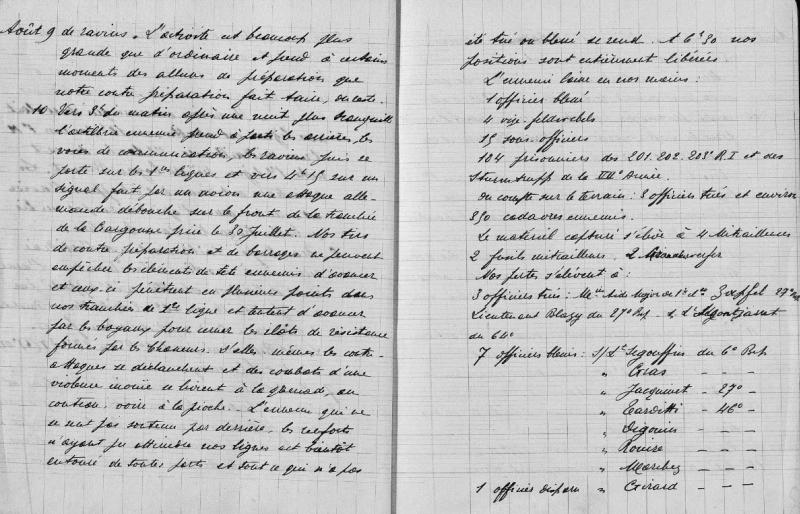 Août 9 de ravins. L'activité est beaucoup plus
grande que d'ordinaire et prend à certains
moments des allures de préparation que
notre contre préparation fait taire, du reste.
10 Vers 3h du matin après une nuit plus tranquille
l'artillerie ennemie prend à partie les arrières, les
voies de communication, les ravins puis se
porte sur les 1ères lignes et vers 4h15 sur un
signal fait par un avion une attaque alle-
mande débouche sur le front de la tranchée
de la Gargousse prise le 30 juillet. Nos tirs
de contre préparation et de barrages ne peuvent
empêcher les éléments de tête ennemis d'avancer
et ceux-ci pénètrent en plusieurs points dans
nos tranchées de 1ère ligne et tentent d'avancer
par les boyaux pour cerner les îlots de résistance
formés par les Chasseurs. D'elles mêmes les contre-
attaques se déclanchent et des combats d'une
violence inouïe se livrent à la grenade, au
couteau, voire à la pioche. L'ennemi qui ne
se sent pas soutenu par derrière, les renforts
n'ayant pu atteindre nos lignes est bientôt
entouré de toutes parts et tout ce qui n'a pas
été tué ou blessé se rend. A 6h30 nos
positions sont entièrement libérées.
L'ennemi laisse en nos mains :
1 officier blessé
4 vize-feldwebels
15 sous-officiers
104 prisonniers des 201. 202. 203e R.I et des
Sturmtrupp de la VIIe Armée.
On compte sur le terrain : 3 officiers tués et environ
350 cadavres ennemis.
Le matériel capturé s'élève à 4 Mitrailleuses
2 fusils mitrailleurs, 2 Granatenwerfer
Nos pertes s'élèvent à :
3 officiers tués : Mr Aide Major de 1e cl. Zoepffel 27e Bat
Lieutenant Blazy du 27e Bat. S/Lt
du 64e
7 officiers blessés : S/Lt Segouffin du 6e Bat
" Gras - - -
" Jacquinet - 27e -
" Tarditti - 46e -
" Digonin - - -
" - - -
" - - -
1 officier disparu " Girard - - -